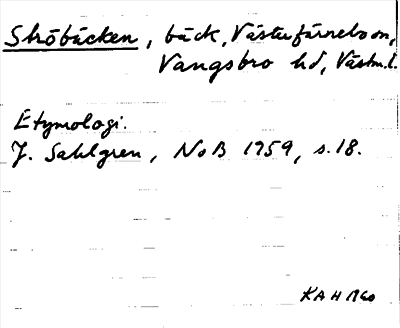 Ströbäcken, bäck, Västerfärnebo sn,
Vangsbro hd, Västm.l.
Etymologi.
J. Sahlgren, NoB 1959, s.18.
KAH 1960